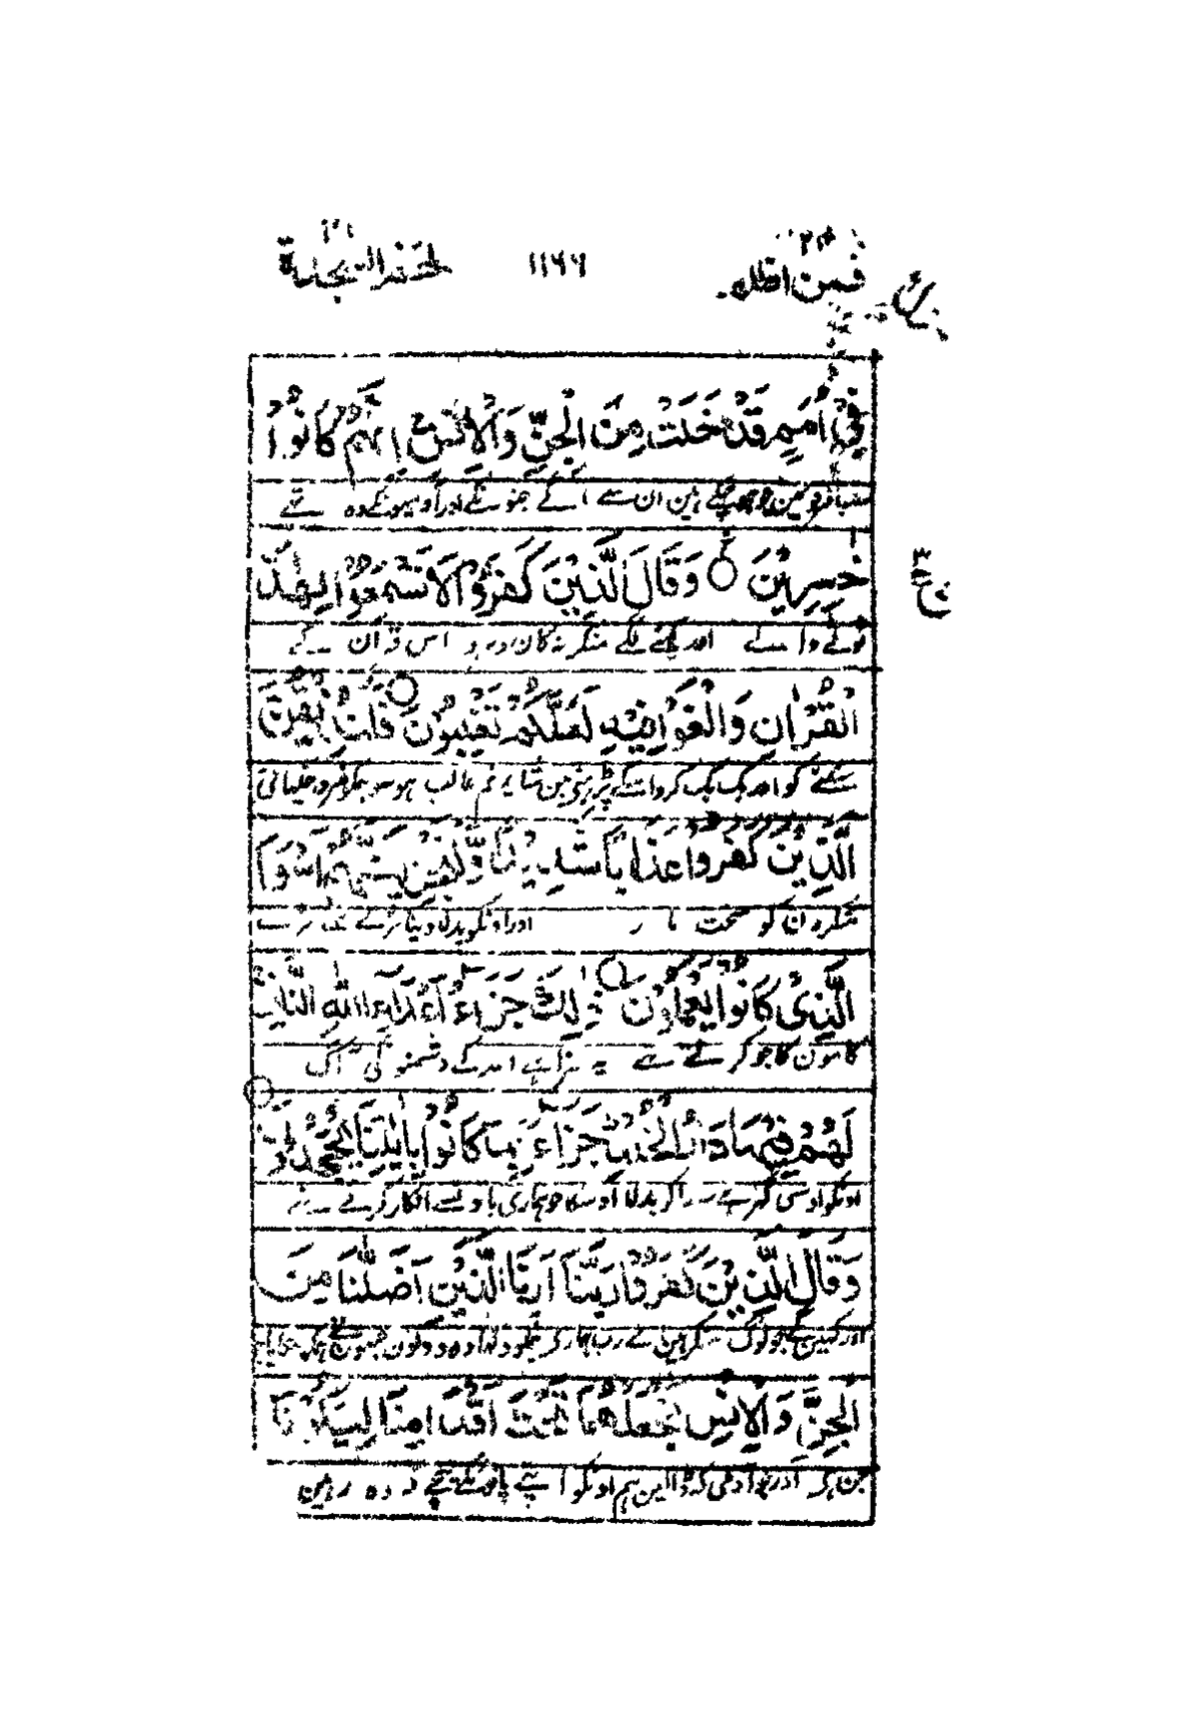 فمن اظلم ٢٤ ١١٦٦ حٰم السجدة
فِيْٓ اُمَمٍ قَدْ خَلَتْ مِنَ الْجِنِّ وَالْاِنْسِ اِنَّهُمْ كَانُوْا
ہین ان سے آگے جنونکے اور آدمیونکے وہ تھے
خٰسِرِيْنَ ○ وَقَالَ الَّذِيْنَ كَفَرُوْا لَا تَسْمَعُوْا لِهٰذَا
ٹوٹے والے اور کہنے لگے منکر نہ کان دہرو اس قرآن کے
الْقُرْاٰنِ وَالْغَوْا فِيْهِ لَعَلَّكُمْ تَغْلِبُوْنَ ○ فَلَنُذِيْقَنَّ
سننے کو اور بک بک کرو اسکے پڑہنے مین شاید تم غالب ہو سو ہمکو ضرور چکہانی
الَّذِيْنَ كَفَرُوْا عَذَابًا شَدِيْدًا وَّلَنَجْزِيَنَّهُمْ اَسْوَاَ
منکرون کو سخت مار اور اونکو بدلا دینا
الَّذِيْ كَانُوْا يَعْمَلُوْنَ ○ ذٰلِكَ جَزَآءُ اَعْدَآءِ اللّٰهِ النَّارُ
کامون کا جو کرتے تھے یہ سزا ہے اللہ کے دشمنو کی آگ
لَهُمْ فِيْهَا دَارُ الْخُلْدِ جَزَآءً بِمَا كَانُوْا بِاٰيٰتِنَا يَجْحَدُوْنَ ○
اونکو اوسی مین گہر ہے سدا کو بدلا اوسکا جو ہماری باتونسے انکار کرتے تھے
وَقَالَ الَّذِيْنَ كَفَرُوْا رَبَّنَآ اَرِنَا الَّذَيْنِ اَضَلّٰنَا مِنَ
اور کہین گے جو لوگ منکر ہین اے رب ہمارے ہمکو دکہا وہ دونون جنہون نے ہمکو بہکایا
الْجِنِّ وَالْاِنْسِ نَجْعَلْهُمَا تَحْتَ اَقْدَامِنَا لِيَكُوْنَا
جن ہے اور جو آدمی کہ ڈالین ہم اونکو اپنے پاؤنکے نیچے کہ وہ رہین